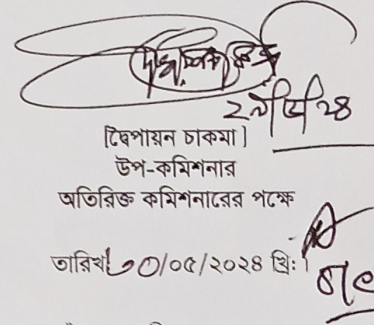 [দ্বিপায়ন চাকমা]
উপ-কমিশনার
অতিরিক্ত কমিশনারের পক্ষে
তারিখ: ৩০/০৫/২০২৪ খ্রি:।